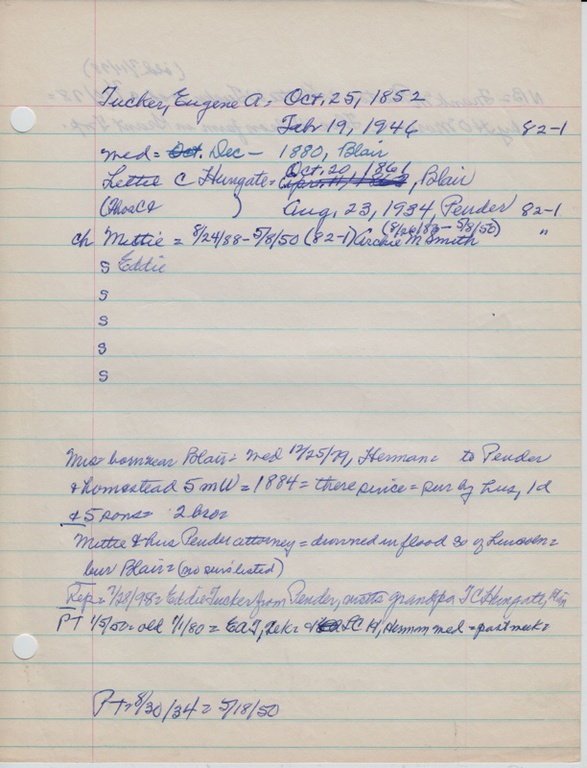 Tucker, Eugene A. = Oct, 25, 1852
Febr 19, 1946 82-1
med = Oct. Dec - 1880, Blair
Lettie C Hungate = Oct. 20, 1861, Blair
(Thos C & ) Aug, 23, 1934, Pender 82-1
ch Mettie = 8/24/88 - 5/8/50 (82-1) Archie M. Smith (8/26/83 - 5/8/50) "
s Eddie
s
s
s
s
Mrs = born near Blair = med 12/25/79, Herman = to Pender
& homestead 5 mW = 1884 = there since = sur by hus, 1d
& 5 sons = 2 bros
Mettie & hus Pender attorney = drowned in flood So of Lincoln =
bur Blair = (no surs listed)
Rep = 7/29/98 = Eddie Tucker from Pender, grandpa T C Hungate,
PT 1/5/50 = old 1/1/80 = E A T, Tek = & L C H, Herman med = past week =
PT = 8/30/34 = 5/18/50